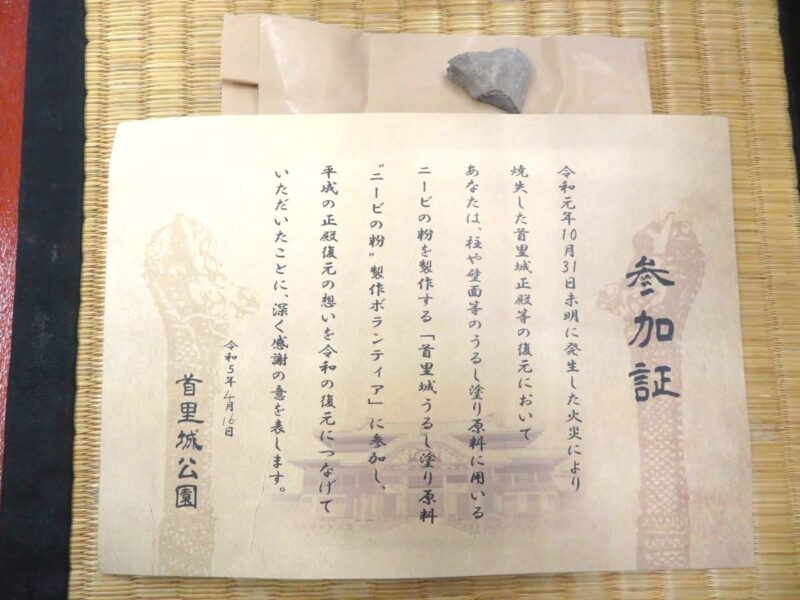 参加証
令和元年10月31日未明に発生した火災により
焼失した首里城正殿等の復元において
あなたは、柱や壁面等のうるし塗り原料に用いる
ニービの粉を製作する「首里城うるし塗り原料
“ニービの粉”製作ボランティア」に参加し、
平成の正殿復元の想いを令和の復元につなげて
いただいたことに、深く感謝の意を表します。
令和5年4月16日
首里城公園